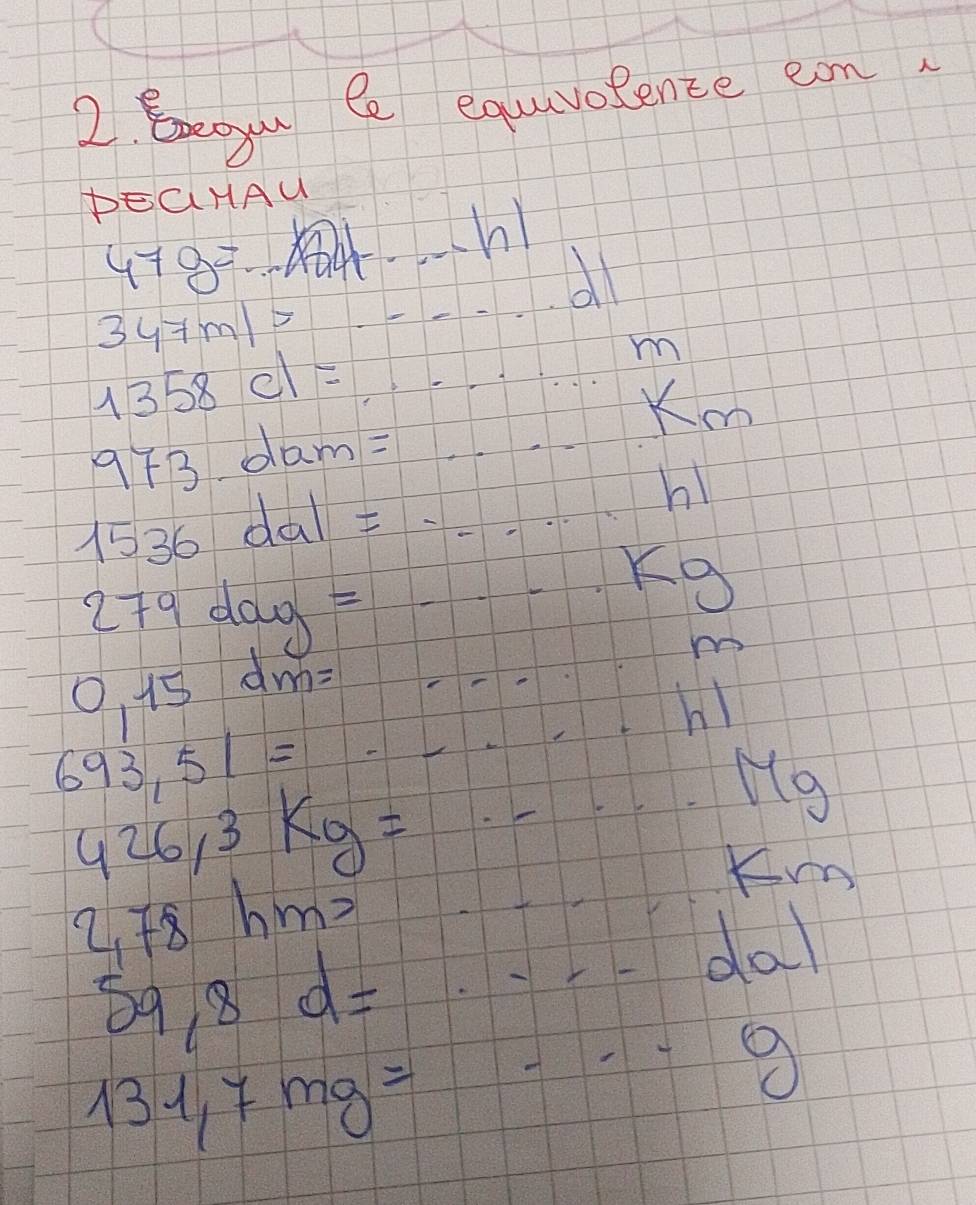 2. Esegui le equivalenze con i
DECIMALI
47 g= ..... hl
347 ml= ..... dl
1358 cl = ........ m
973 dam= ..... Km
1536 dal = ...... hl
279 dag = ..... Kg
0,15 dm= ..... m
693,5 l = ..... hl
426,3 Kg= ..... Mg
2,78 hm= ..... Km
59,8 d= ..... dal
131,7 mg= ... g